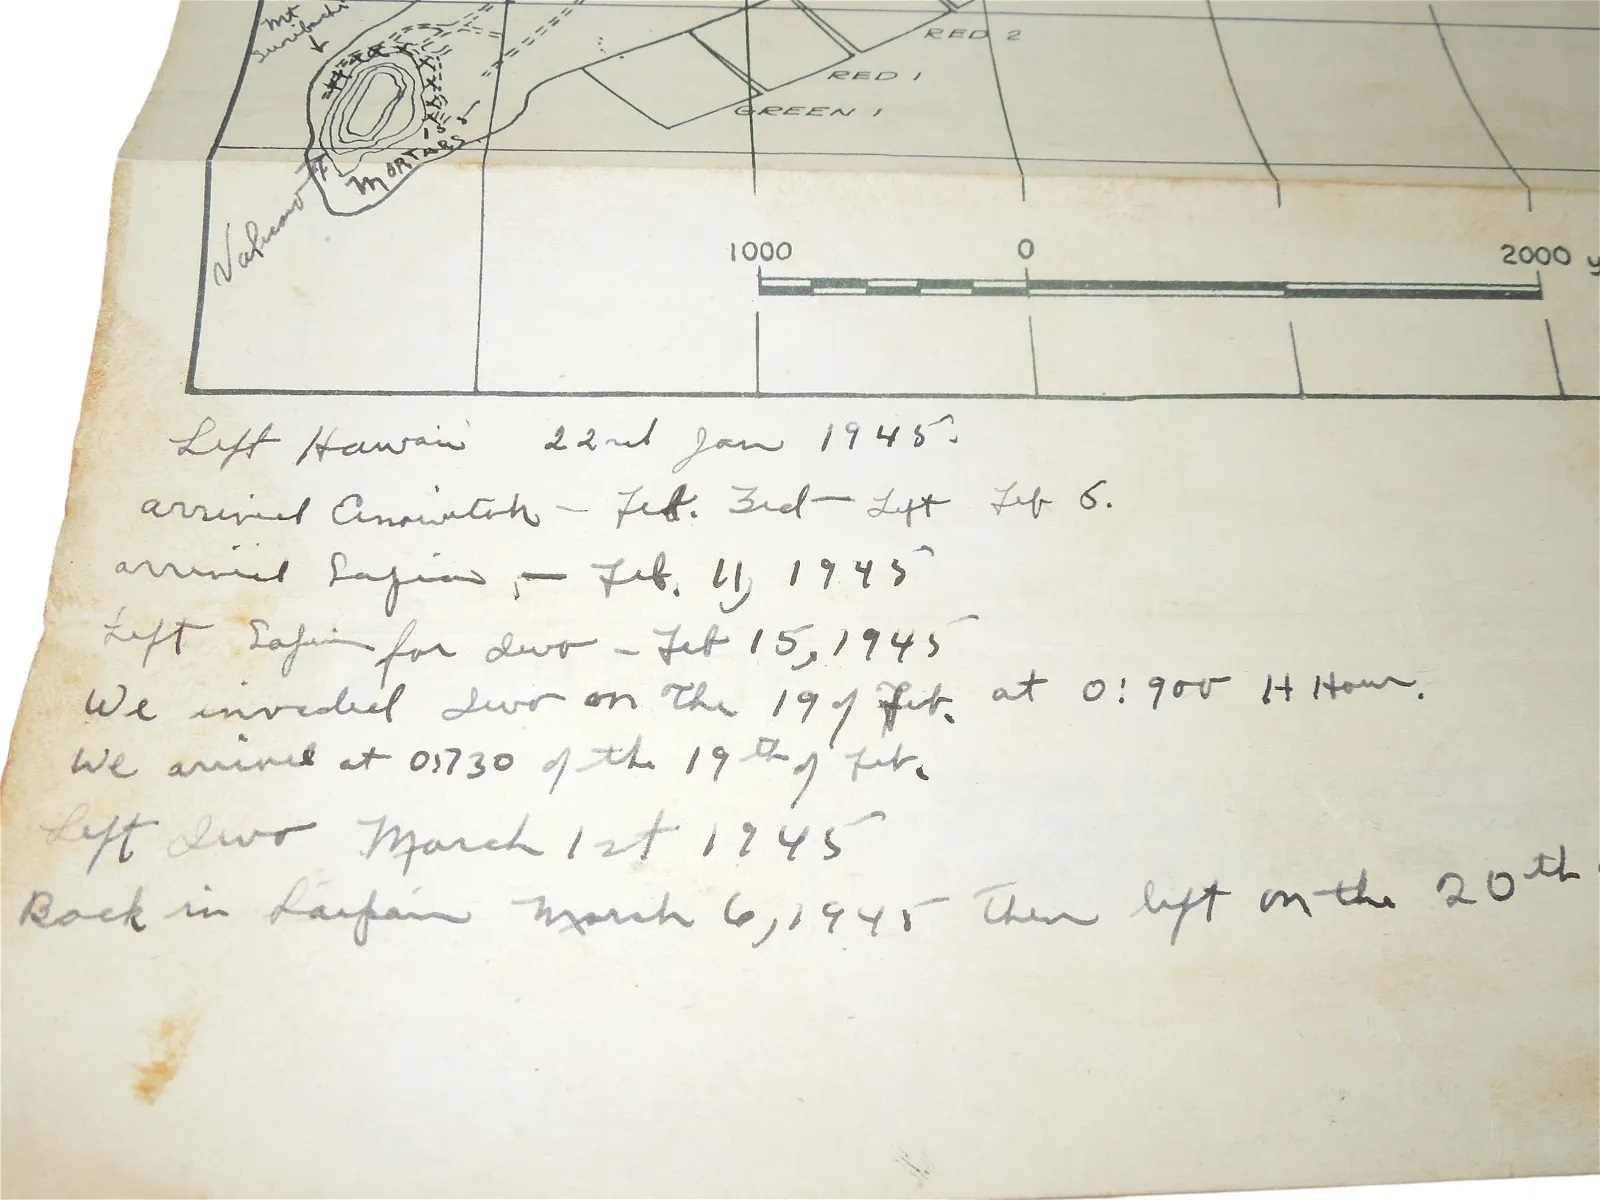 Mt
Suribachi
RED 2
RED 1
GREEN 1
MORTARS
Volcano
1000 0 2000 y
Left Hawaii 22nd Jan 1945.
arrived Eniwetok - Feb. 3rd - Left Feb 6.
arrived Saipan, - Feb. 11, 1945
Left Saipan for Iwo - Feb 15, 1945
We invaded Iwo on The 19 of Feb. at 0:900 H Hour.
We arrived at 0:730 of the 19th of Feb.
Left Iwo March 1st 1945
Back in Saipan March 6, 1945 Then left on the 20th